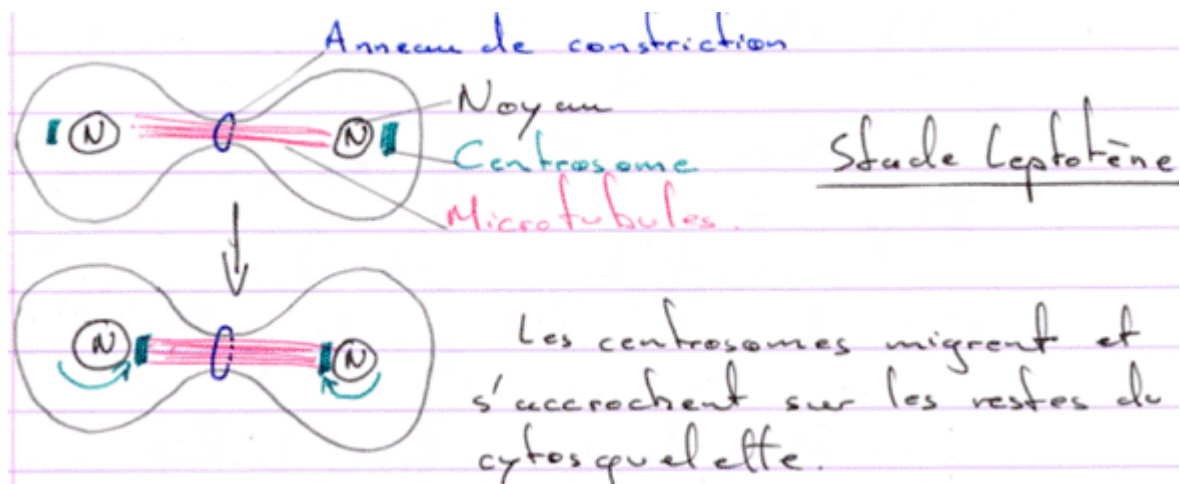 Anneau de constriction
N
N
Noyau
Centrosome
Stade Leptotène
Microtubules.
N
N
Les centrosomes migrent et
s'accrochent sur les restes du
cytosquelette.